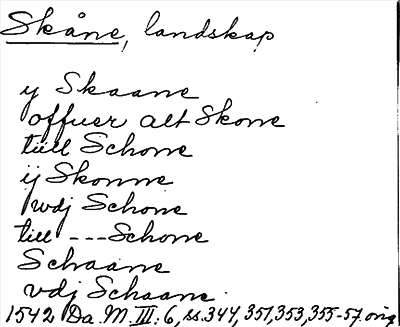 Skåne, landskap
y Skaane
offuer alt Skone
tiill Schone
ij Skonne
vdj Schone
till --- Schone
Schaane
vdj Schaane.
1542 Da. M. III: 6, ss. 344, 351, 353, 355-57. orig